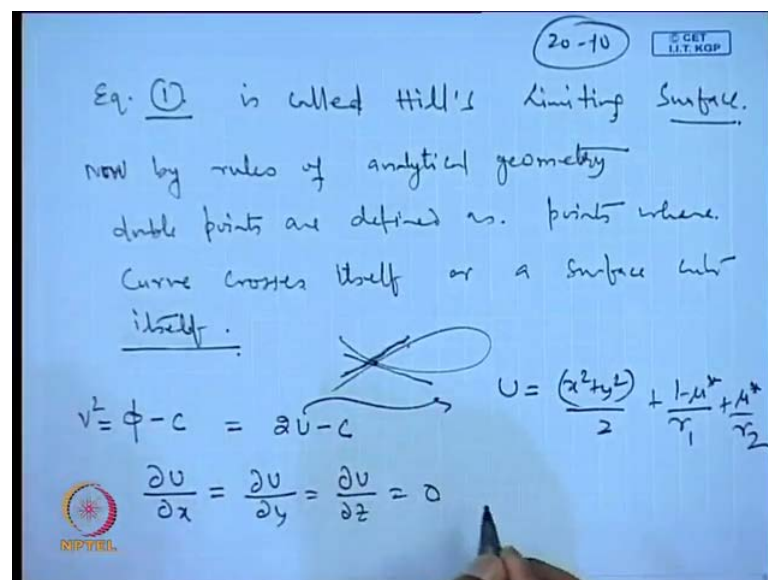 20-10
© CET
I.I.T. KGP
Eq. ① is called Hill's Limiting Surface.
Now by rules of analytical geometry
double points are defined as. points where.
Curve crosses itself or a surface cuts
itself.
U = (x²+y²)/2 + (1-μ*)/r₁ + μ*/r₂
v² = φ - c = 2U - c
∂U/∂x = ∂U/∂y = ∂U/∂z = 0
NPTEL